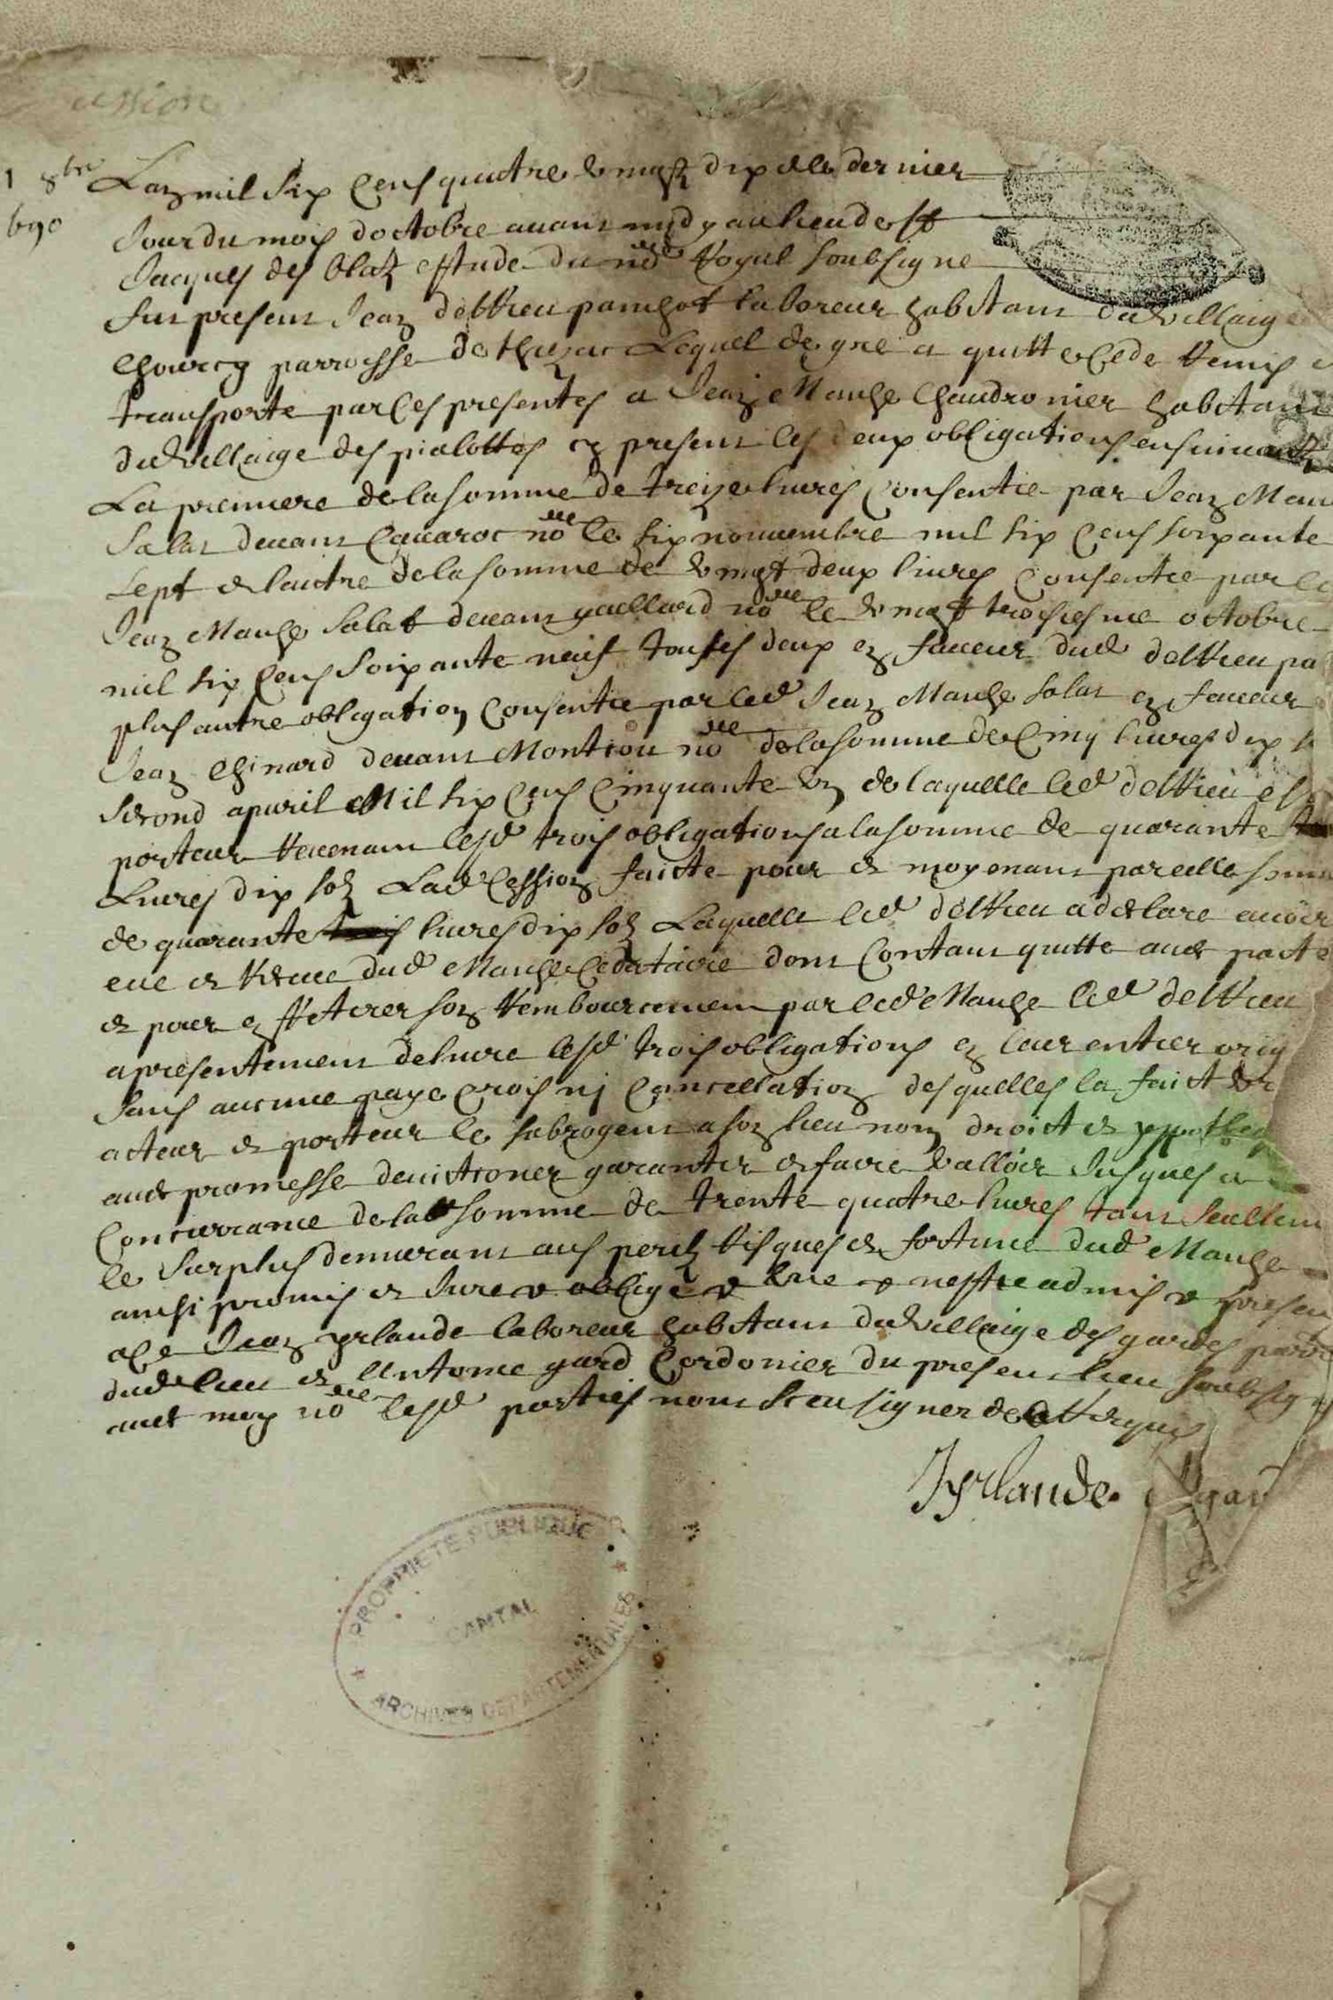 cession
1 8bre
690
Lan mil six cens quatre vingtz dix & le dernier
Jour du mois doctobre avant midy au lieu de st
Jacques des blatz estude du nore Royal soubsigne
fut present Jean delrieu panchot laboreur habitant du village
parroisse de thiezac Lequel de gre a quitte cede remis
transporte par ces presentes a Jean Mauhe chaudronier habitant
du villaige des pialottes cy present les deux obligations ensuivant
La premiere de la somme de treize livres consentie par Jean Mau
Salat devant cavaroc nore le six nouvembre mil six cens soixante
sept & lautre de la somme de vingt deux livres consentie par le
Jean Mauhe Salat devant gaillard nore le vingt troisiesme octobre
mil six cens soixante neuf toutes deux en faveur dud delrieu pa
plus autre obligation consentie par led Jean Mauhe salat en faveur
Jean chinard devant Montiou nore de la somme de cinq livres dix s
second apvril Mil six cens cinquante un de laquelle led delrieu est
porteur revenant lesd trois obligations a la somme de quarante
Livres dix solz Lad cession faicte pour & moyenant pareille somm
de quarante livres dix solz Laquelle led delrieu a declare avoir
eue & receue dud Mauhe cedataire dont contant quitte avec pacte
& pour en retirer son rembourcement par led Mauhe led delrieu
a presentement delivre lesd trois obligations en leur entier orig
sans aucune paye crois ni cancellation desquelles la faict vr
acteur & porteur le subrogent a son lieu nom droict & ypotheq
avec promesse devictioner garantir & faire valloir Jusques a
Concurrance de la somme de trente quatre livres tant seullem
le surplus demurant aus perilz risques & fortune dud Mauhe
ainsi promis & Jure obligé nestre admis presen
a ce Jean yrlande laboreur habitant du villaige des gardes parr
dud lieu & Antoine gard cordonier du present lieu soubsig
avec moy nore lesd parties nont sceu signer de ce requis
Jyrlande gar
PROPRIETE PUBLIQUE
CANTAL
ARCHIVES DEPARTEMENTALES